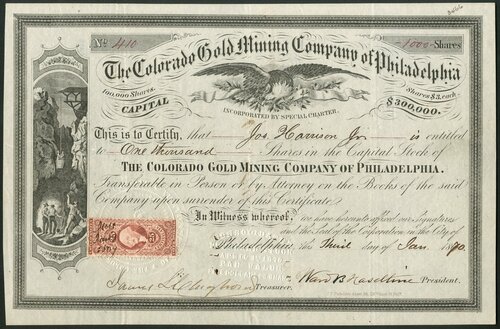 No. 410 1000 Shares
The Colorado Gold Mining Company of Philadelphia
100,000 Shares. Shares $3. each
CAPITAL $300,000.
INCORPORATED BY SPECIAL CHARTER.
This is to Certify, that Jos Harrison Jr is entitled
to One thousand Shares in the Capital Stock of
THE COLORADO GOLD MINING COMPANY OF PHILADELPHIA.
Transferable in Person or by Attorney on the Books of the said
Company upon surrender of this Certificate.
In Witness whereof, we have hereunto affixed our Signatures
and the Seal of the Corporation in the City of
Philadelphia, this Third day of Jan.
Treasurer. President.